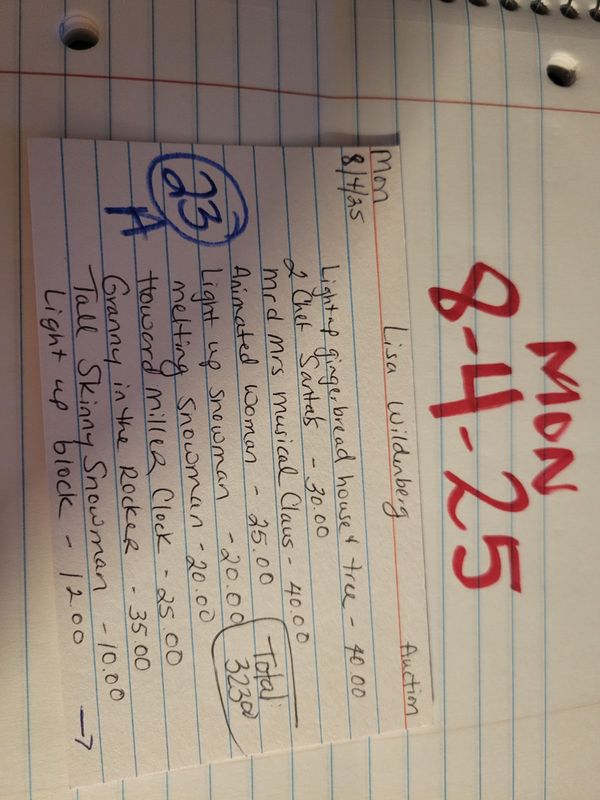 MON
8-4-25
Mon Lisa Wildenberg Auction
8/4/25
Light up gingerbread house & tree - 40.00
2 Chef Santas - 30.00
Mr & Mrs musical Claus - 40.00
Animated woman - 25.00
Light up snowman - 20.00
melting snowman - 20.00
Howard Miller Clock - 25.00
Granny in the Rocker - 35.00
Tall Skinny Snowman - 10.00
Light up block - 12.00 →
Total
323.00
23
A